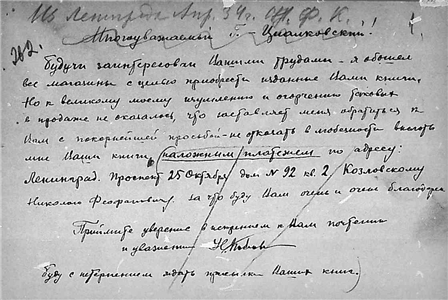 Из Ленинграда Апр. 34 г. От. Ф. К.
262.
Многоуважаемый т. Циолковский!
Будучи заинтересован Вашими трудами – я обошел
все магазины с целью приобрести изданные Вами книги.
Но к великому моему изумлению и огорчению таковых
в продаже не оказалось, что заставляет меня обратиться к
Вам с покорнейшей просьбой – не отказать в любезности выслать
мне Ваши книги наложенным платежем по адресу:
Ленинград. Проспект 25 Октября дом № 92 кв. 2 Козловскому
Николаю Феофановичу. за что буду Вам очень и очень благодарен
Примите уверение в искреннем к Вам почтении
и уважении
буду с нетерпением ждать присылки Ваших книг.